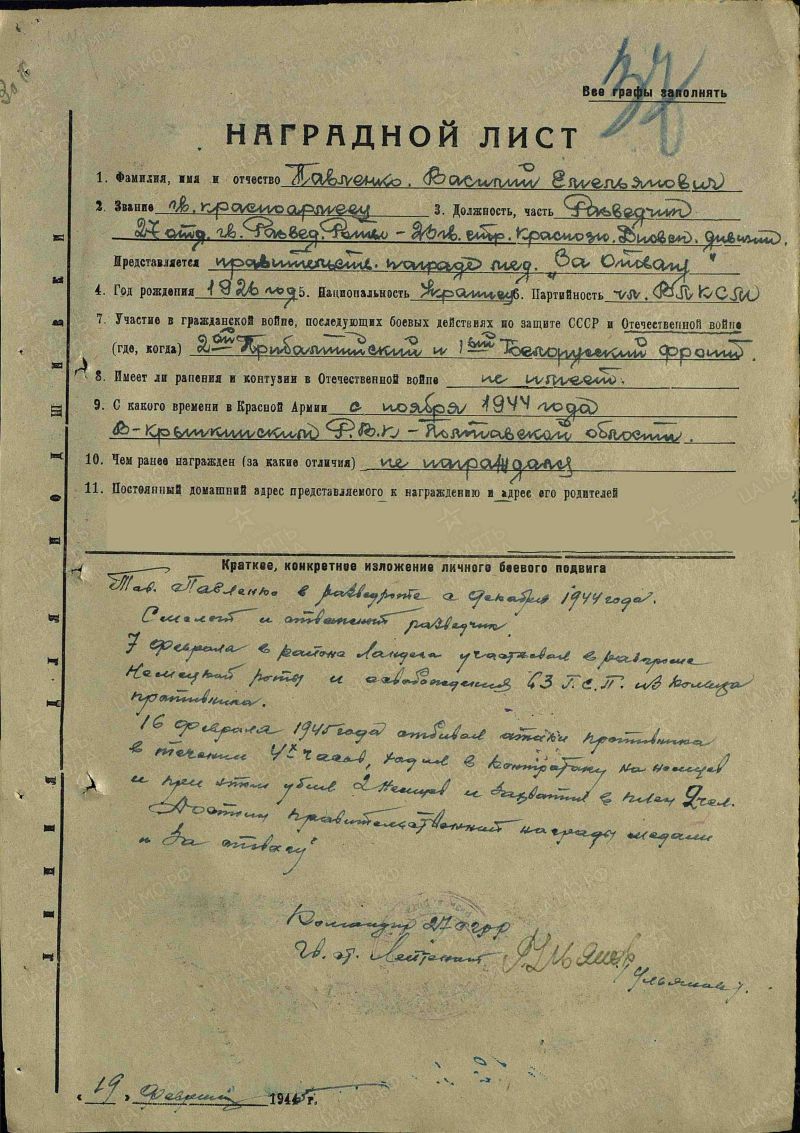 37
Все графы заполнять
НАГРАДНОЙ ЛИСТ
1. Фамилия, имя и отчество Павленко. Василий Емельянович
2. Звание гв. красноармеец 3. Должность, часть Разведчик
27 отд. гв. Развед. Роты – 26 гв. стр. Краснозн. дивизии.
Представляется правительств. награде мед. „За Отвагу"
4. Год рождения 1926 год 5. Национальность Украинец 6. Партийность чл. ВЛКСМ
7. Участие в гражданской войне, последующих боевых действиях по защите СССР и Отечественной войне
(где, когда) 2ой Прибалтийский и 1ый Белорусский фронт.
8. Имеет ли ранения и контузии в Отечественной войне не имеет.
9. С какого времени в Красной Армии с ноября 1944 года
РВК – Полтавской области.
10. Чем ранее награжден (за какие отличия) не награждался
11. Постоянный домашний адрес представляемого к награждению и адрес его родителей
Краткое, конкретное изложение личного боевого подвига
Тов. Павленко в разведроте с декабря 1944 года.
Смелый и отважный разведчик.
7 февраля в районе участвовал в разгроме
Немецкой роты и освобождения 63 Г.С.П. из кольца
противника.
16 февраля 1945 года отбивал атаки противника
в течении 4х часов, ходил в контратаку на немцев
и при этом убил 2 немцев и захватил в плен 2 чел.
Достоин правительственной награды медали
„За отвагу"
Командир 27 огрр
гв. ст. Лейтенант
/Ульянов/.
„19" февраля 1945 г.
для подшивки